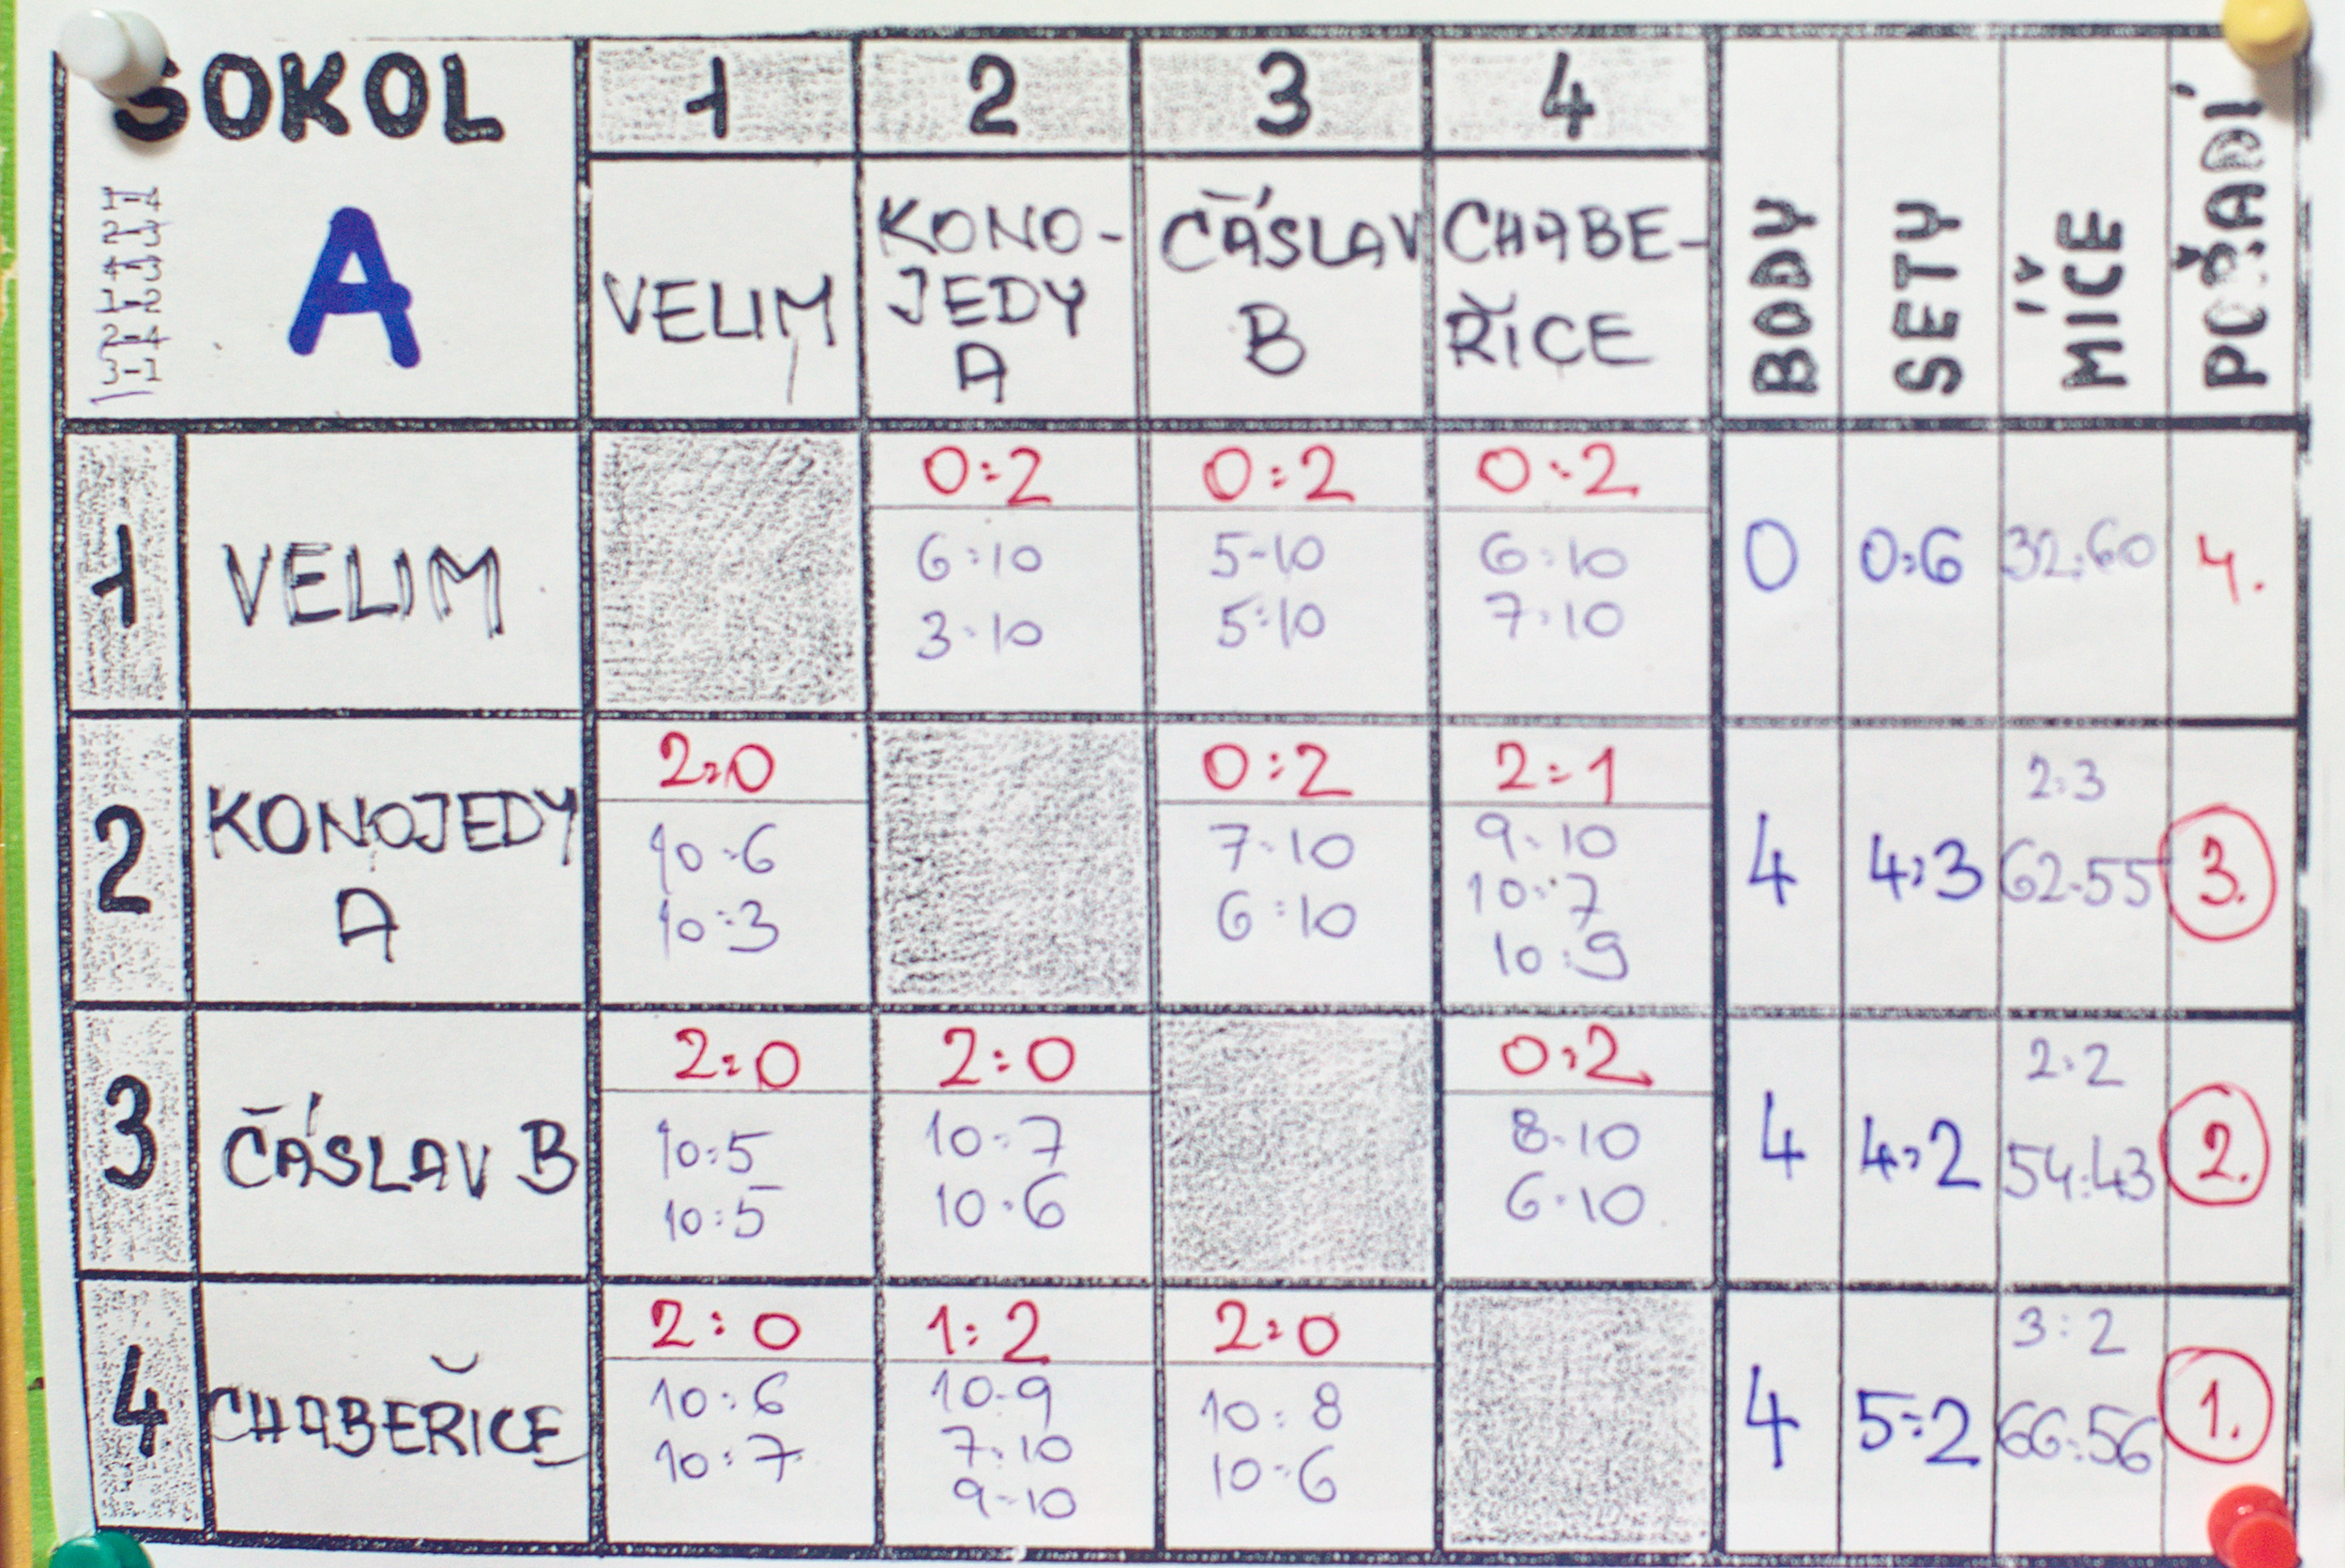 SOKOL
A
1
2
3
4
VELIM
KONO-
JEDY
A
ČÁSLAV
B
CHABE-
ŘICE
BODY
SETY
MÍČE
POŘADÍ
1
VELIM
0:2
6:10
3:10
0:2
5-10
5:10
0:2
6:10
7:10
0
0:6
32:60
4.
2
KONOJEDY
A
2:0
10:6
10:3
0:2
7:10
6:10
2:1
9:10
10:7
10:9
4
4:3
2:3
62:55
3.
3
ČÁSLAV B
2:0
10:5
10:5
2:0
10:7
10:6
0:2
8:10
6:10
4
4:2
2:2
54:43
2.
4
CHABEŘICE
2:0
10:6
10:7
1:2
10-9
7:10
9-10
2:0
10:8
10:6
4
5:2
3:2
66:56
1.